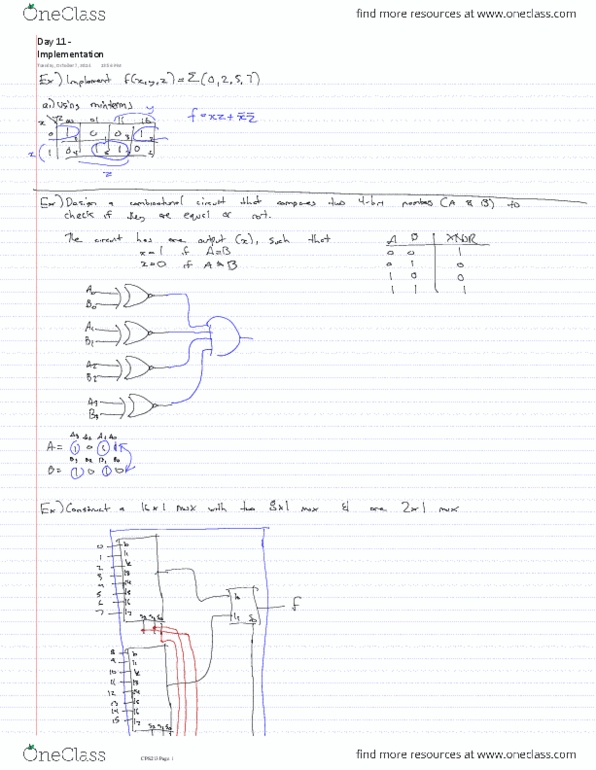 OneClass
find more resources at www.oneclass.com
Day 11 -
Implementation
Tuesday, October 7, 2014
Ex) Implement f(x,y,z) = Σ(0, 2, 5, 7)
a) Using minterms
y
x yz 00 01 11 10
f = xz + x̄z̄
0 1 0 0 0 3 1 2
x 1 0 4 1 5 1 7 0 6
z
Ex) Design a combinational circuit that compares two 4-bit numbers (A & B) to
check if they are equal or not.
The circuit has one output (x), such that
x=1 if A=B
x=0 if A≠B
A B XNOR
0 0 1
0 1 0
1 0 0
1 1 1
A0
B0
A1
B1
A2
B2
A3
B3
A3 A2 A1 A0
A= 1 0 1
B3 B2 B1 B0
B= 1 0 1 0
Ex) Construct a 16x1 mux with two 8x1 mux & one 2x1 mux
0 I0
1 I1
2 I2
3 I3
4 I4
5 I5
6 I6
7 I7
S2 S1 S0
I0
I1 S0
f
8 I0
9 I1
10 I2
11 I3
12 I4
13 I5
14 I6
15 I7
S2 S1 S0
OneClass
CPS213 Page 1
find more resources at www.oneclass.com